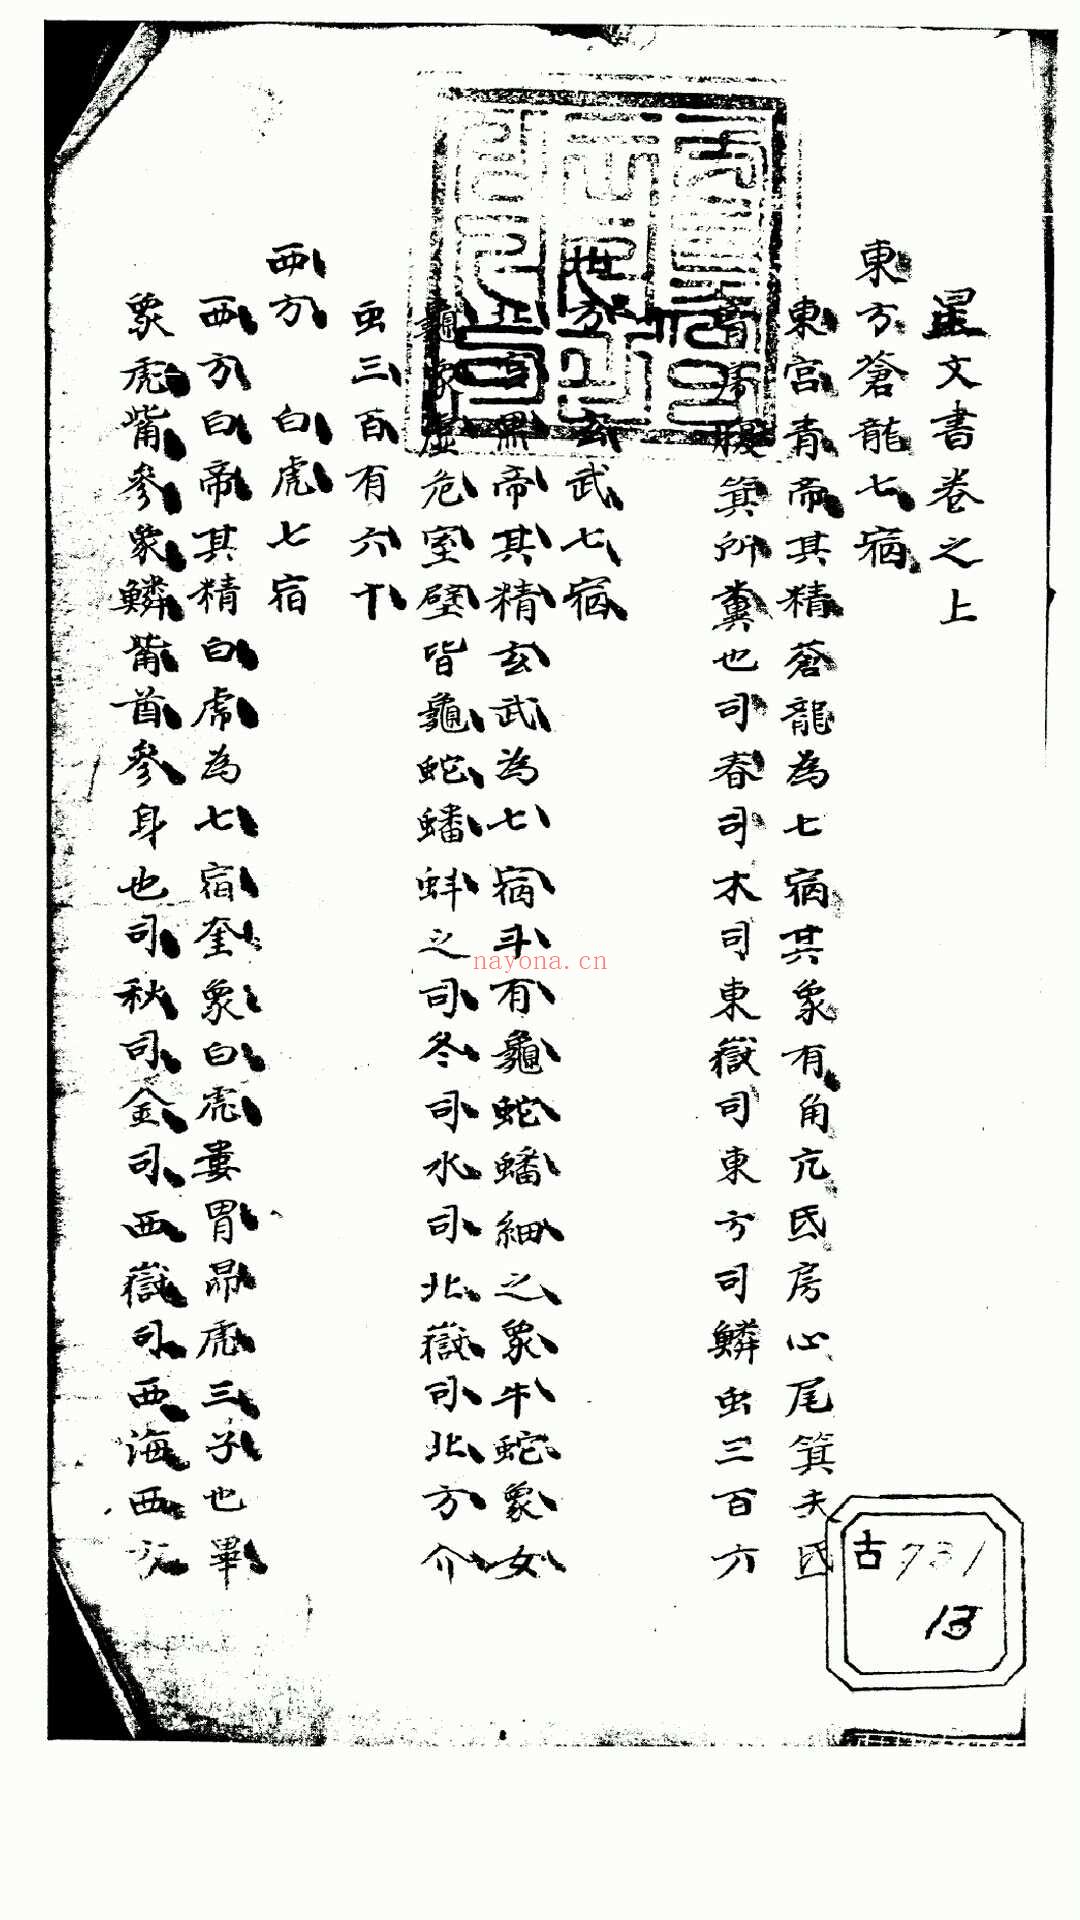 星文書卷之上
東方蒼龍七宿
東宮青帝其精蒼龍為七宿其象有角亢氐房心尾箕夫氐
胷房腹箕所糞也司春司木司東嶽司東方司鱗虫三百六
北方玄武七宿
北宮黑帝其精玄武為七宿斗有龜蛇蟠細之象牛蛇象女
龜象虛危室壁皆龜蛇蟠蚌之司冬司水司北嶽司北方介
虫三百有六十
西方 白虎七宿
西方白帝其精白虎為七宿奎象白虎婁胃昴虎三子也畢
象虎觜參象鱗觜首參身也司秋司金司西嶽司西海西方
古731
13
nayona.cn